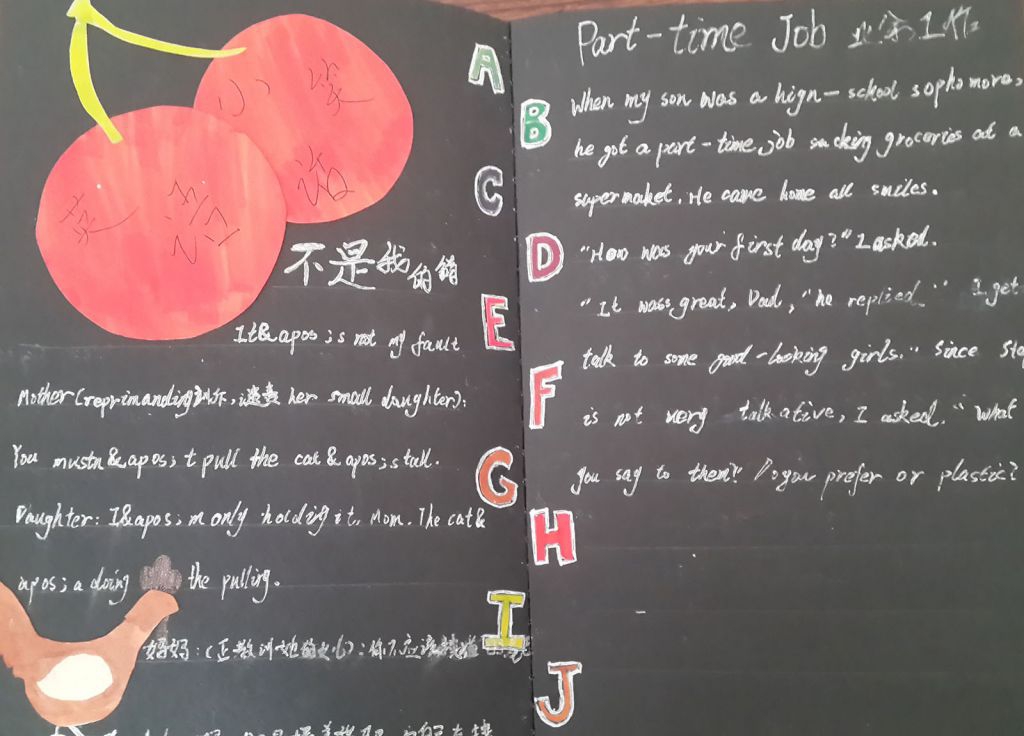 英语
小笑话
不是我的错
It&apos;s not my fault
Mother(reprimanding训斥,谴责 her small daughter):
You mustn&apos;t pull the cat&apos;s tall.
Daughter: I&apos;m only holding it, Mom. The cat&
apos;a doing the pulling.
妈妈:(正教训她的女儿):你不应该
A
B
C
D
E
F
G
H
I
J
Part-time Job
When my son was a hign-school sophomore,
he got a part-time job sacking groceries at a
supermarket. He came home all smiles.
"How was your first day?" I asked.
"It wass great, Dad, "he replied" I get
talk to some good-looking girls." Since
is not very talkative, I asked. "What
you say to them?" Do you prefer or plastic?